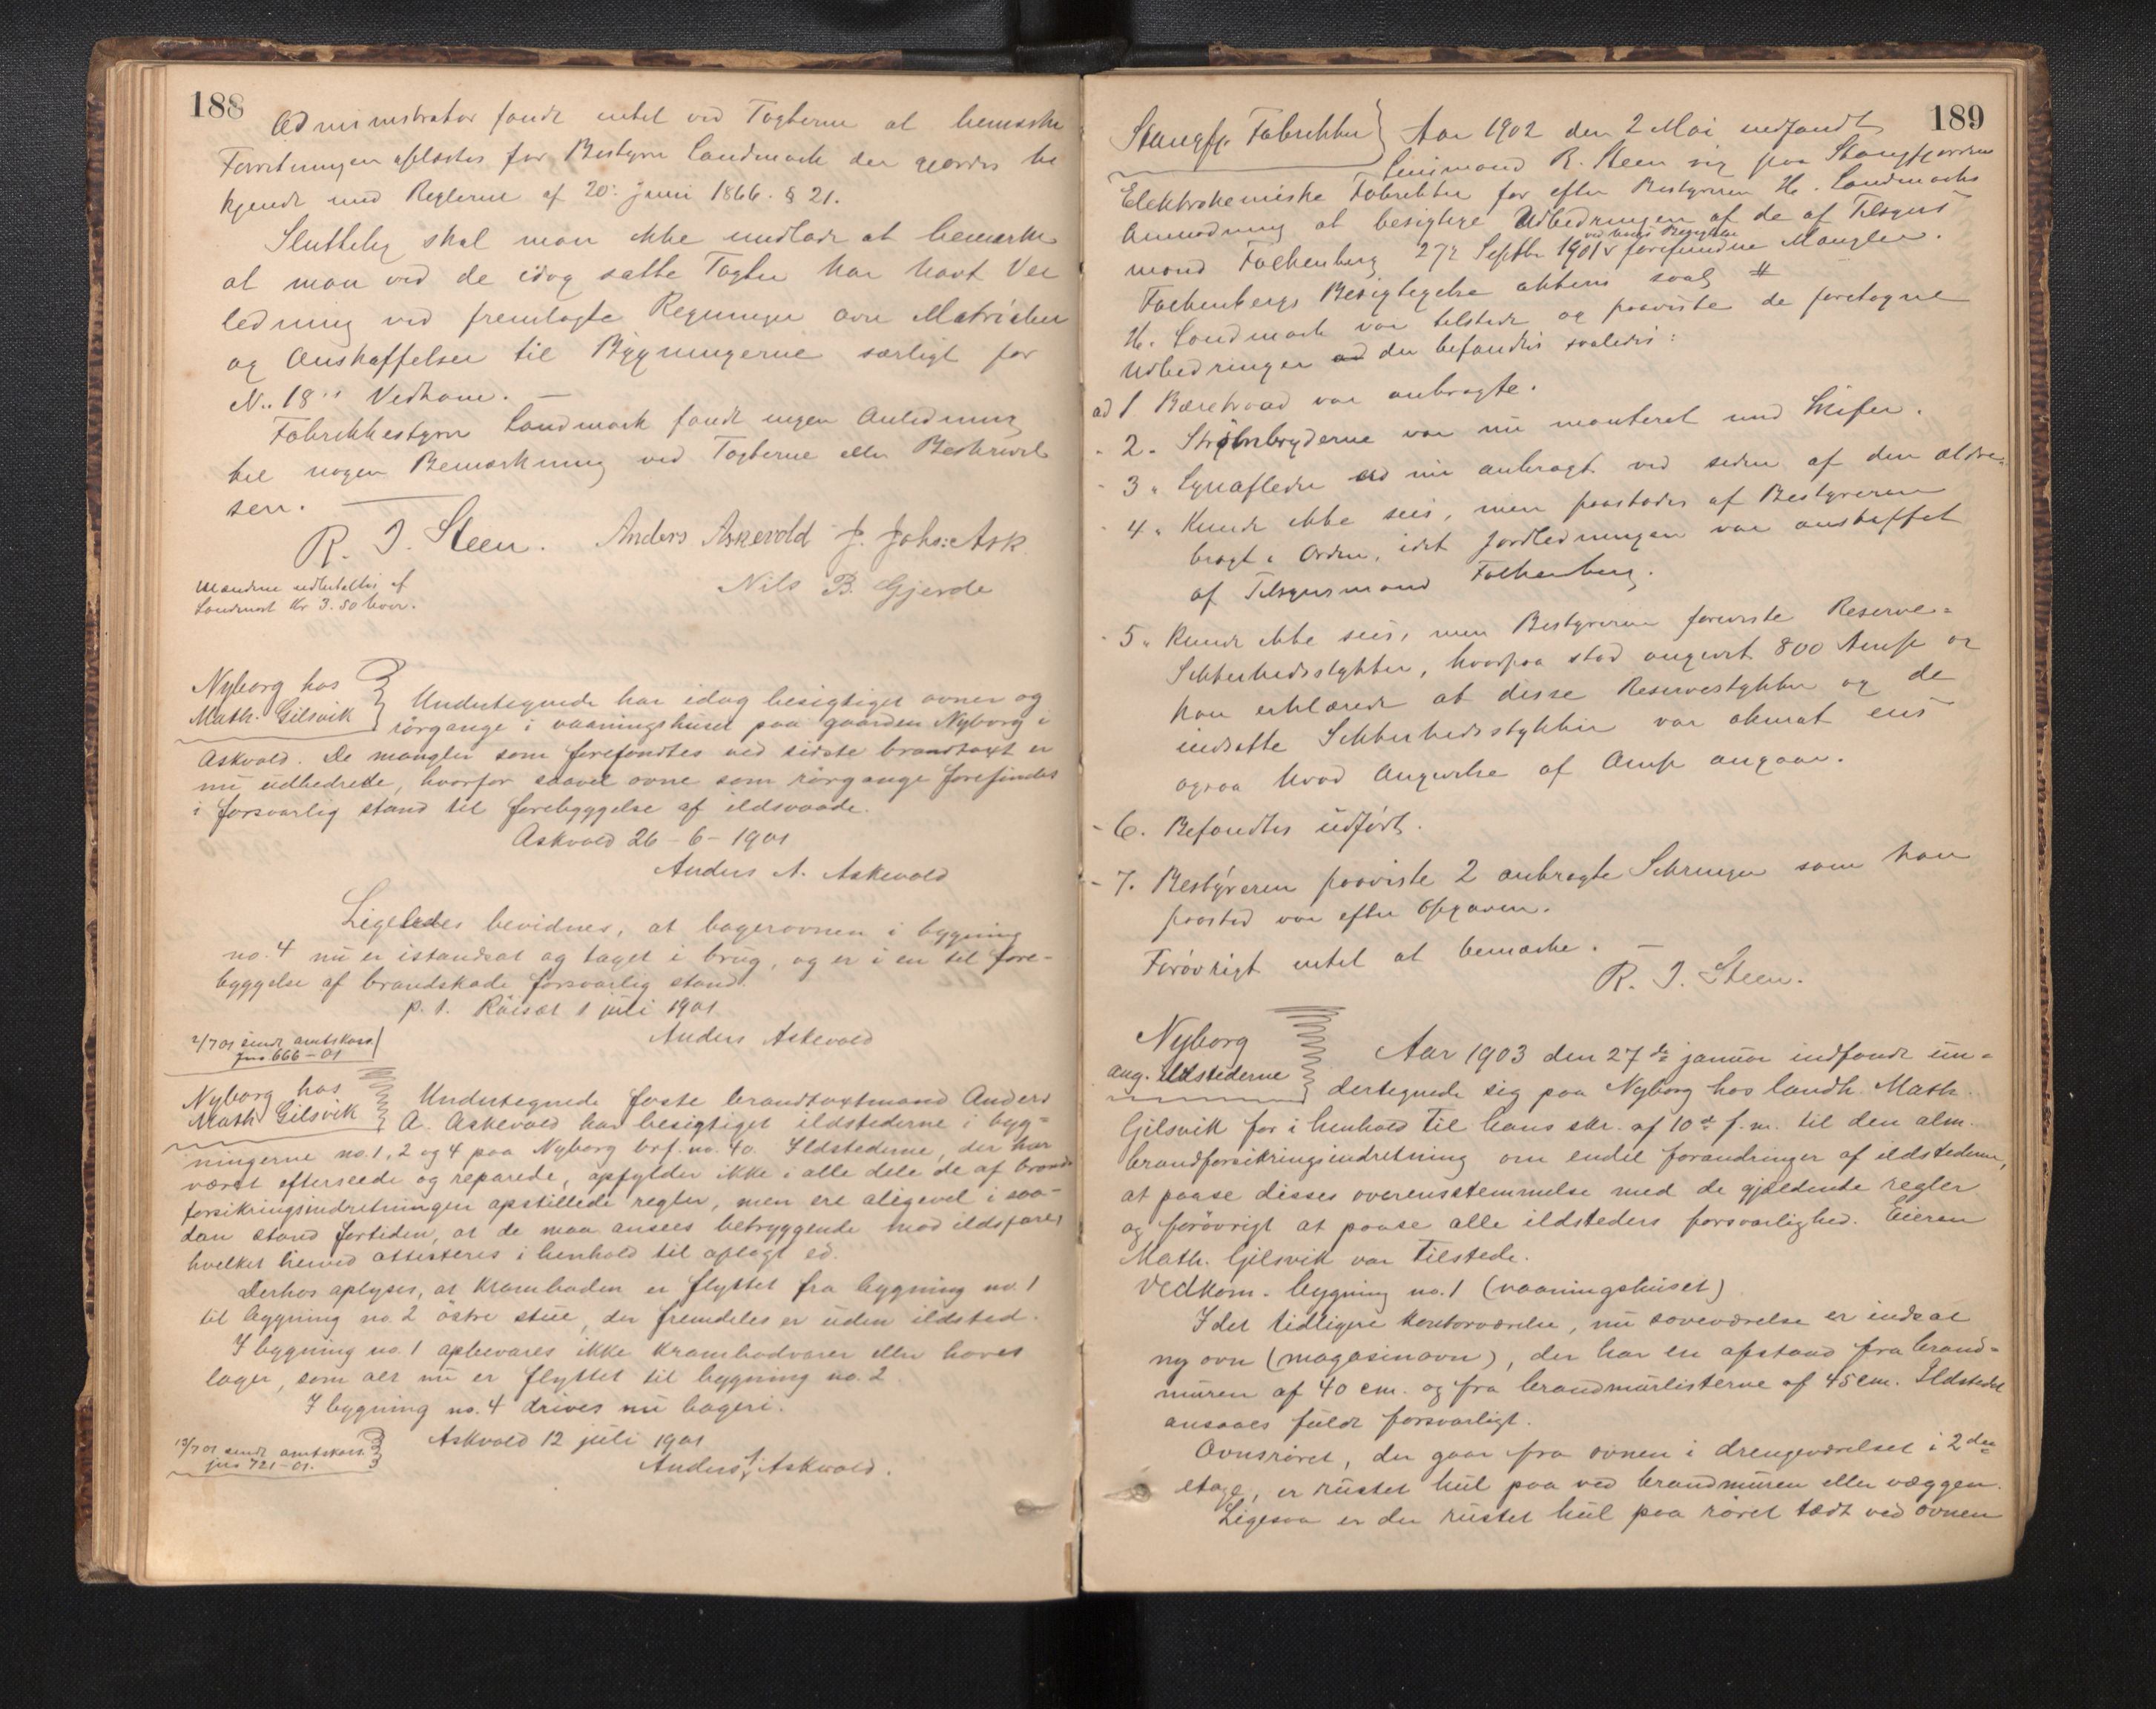 188
Administrator fandt intet ved Taxterne at bemærke
Forretningen oplæstes for Bestyrer Landmark der gjordes be
kjendt med Reglerne af 20. Juni 1866. § 21.
Sluttelig skal man ikke undlade at bemærke
at man ved de idag satte Taxter har havt Vei
ledning ved fremlagte Regninger over Matrialer
og Anskaffelser til Bygningerne særligt for
N.. 18 .. Vedkom. —
Fabrikkestyrer Landmark fandt ingen Anledning
til nogen Bemærkning ved Taxterne eller Beskrivel
sen.
R. J. Steen. Anders Askevold J. Johs: Ask.
Nils B. Gjerde
Mændene udbetaltes af
Landmark Kr 3.50 hver.
Nyborg hos
Math. Gilsvik
Undertegnede har idag besigtiget ovner og
rörgange i vaaningshuset paa gaarden Nyborg i
Askvold. De mangler som forefandtes ved sidste brandtaxt er
nu udbedrede, hvorfor saavel ovne som rörgange forefindes
i forsvarlig stand til forebyggelse af ildsvaade.
Askvold 26 - 6 - 1901
Anders A. Askevold
Ligeledes bevidnes, at bagerovnen i bygning
no. 4 nu er istandsat og taget i brug, og er i en til fore-
byggelse af brandskade forsvarlig stand.
p. t. Räiset 1 juli 1901
Anders Askevold
2/7 01 sendt amtskass.
jno 666 - 01
Nyborg hos
Math Gilsvik
Undertegnede faste brandtaxtmand Anders
A. Askevold har besigtiget ildstederne i byg-
ningerne no. 1, 2 og 4 paa Nyborg brf. no. 40. Ildstederne, der har
været efterseede og reparede, opfylder ikke i alle dele de af brand-
forsikringsindretningen opstillede regler, men ere aligevel i saa-
dan stand fortiden, at de maa ansees betryggende mod ildsfare,
hvilket herved attesteres i henhold til aflagt ed.
Derhos oplyses, at Kramboden er flyttet fra bygning no. 1
til bygning no. 2 östre stue, der fremdeles er uden ildsted.
I bygning no. 1 opbevares ikke Krambodvarer eller haves
lager, som alt nu er flyttet til bygning no. 2.
I bygning no. 4 drives nu bageri.
Askvold 12 juli 1901
Anders A. Askevold.
13/7 01 sendt amtskass.
jno 721 - 01.
189
Stangfj. Fabrikker
Aar 1902 den 2 Mai indfandt
Lensmand R. Steen sig paa Stangfjordens
Elektrokemiske Fabrikker for efter Bestyreren H. Landmarks
Anmodning at besigtige Udbedringen af de af Tilsyns
mand Falkenberg 27de Septbr 1901 v forefundne Mangler.
Falkenbergs Besigtigelse
H. Landmark var tilstede og paaviste de foretagne
Udbedringer der befandtes saaledes:
ad 1. Bæretraad var anbragte.
- 2. Strömbryderne var nu monteret med Skifer.
- 3. Lynafleder nu anbragt ved siden af den ældre.
- 4. Kunde ikke sees, men paastodes af Bestyreren
bragt i Orden, idet Jordledningen var anskaffet
af Tilsynsmand Falkenberg.
- 5. Kunde ikke sees, men Bestyreren foreviste Reserve-
Sikkerhedsstykker, hvorpaa stod angivet 800 Amp og
han erklærede at disse Reservestykker og de
indsatte Sikkerhedsstykker var akurat ens
ogsaa hvad Angivelse af Amp angaar.
- 6. Befandtes udført.
- 7. Bestyreren paaviste 2 anbragte Sikringer som han
paastod var efter Opgaven.
Forøvrigt intet at bemærke. —
R. J. Steen.
Nyborg
ang. ildstederne
Aar 1903 den 27de januar indfandt un-
dertegnede sig paa Nyborg hos landh. Math.
Gilsvik for i henhold til hans skr. af 10de f. m. til den alm.
brandforsikringsindretning om endel forandringer af ildstederne,
at paase disses overensstemmelse med de gjældende regler
og forövrigt at paase alle ildsteders forsvarlighed. Eieren
Math. Gilsvik var tilstede.
Vedkom. bygning no. 1 (vaaningshuset)
I det tidligere Kontorværelse, nu soveværelse er indsat
ny ovn (magasinovn), der har en afstand fra brand-
muren af 40 cm. og fra brandmurlisterne af 45 cm. Ildstedet
ansaaes fuldt forsvarligt.
Ovnsröret, der gaar fra ovnen i drengeværelset i 2den
etage, er rustet hul paa ved brandmuren eller væggen.
Ligesaa er der rustet hul paa röret tædt ved ovnen